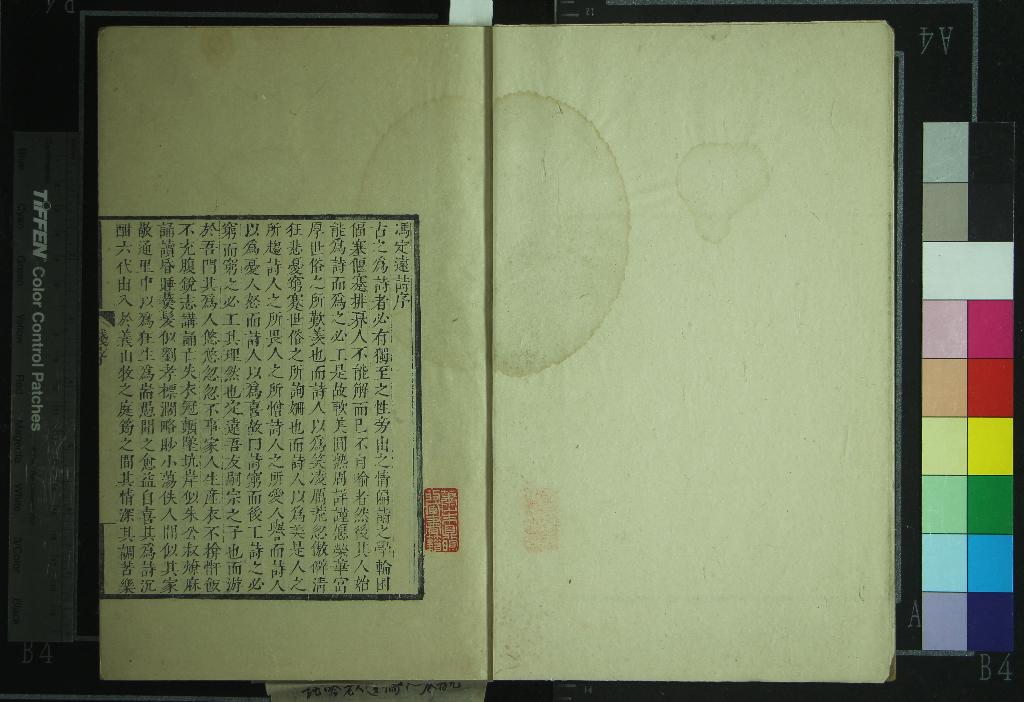 馮定遠詩序
古之為詩者必有獨至之性旁出之情偏詣之學輪囷
偪塞偃蹇排奡人不能解而己不自喻者然後其人始
能為詩而為之必工是故軟美圓熟周詳謹愿榮華富
厚世俗之所歎羨也而詩人以為笑凌厲荒忽傲僻清
狂悲憂窮蹇世俗之所詢姍也而詩人以為美是人之
所趨詩人之所畏人之所憎詩人之所愛人譽而詩人
以為憂人怒而詩人以為喜故曰詩窮而後工詩之必
窮而窮之必工其理然也定遠吾友嗣宗之子也而游
於吾門其為人悠悠忽忽不事家人生產衣不揜骭飯
不充腹銳志講誦亡失衣冠顛墜坑岸似朱公叔燎麻
誦讀昏睡爇髮似劉孝標濶略眇小蕩佚人間似其家
敬通里中以為狂生為耑愚聞之愈益自喜其為詩沉
酣六代出入於義山牧之庭筠之間其情深其調苦樂
TIFFEN Color Control Patches
A4
B4